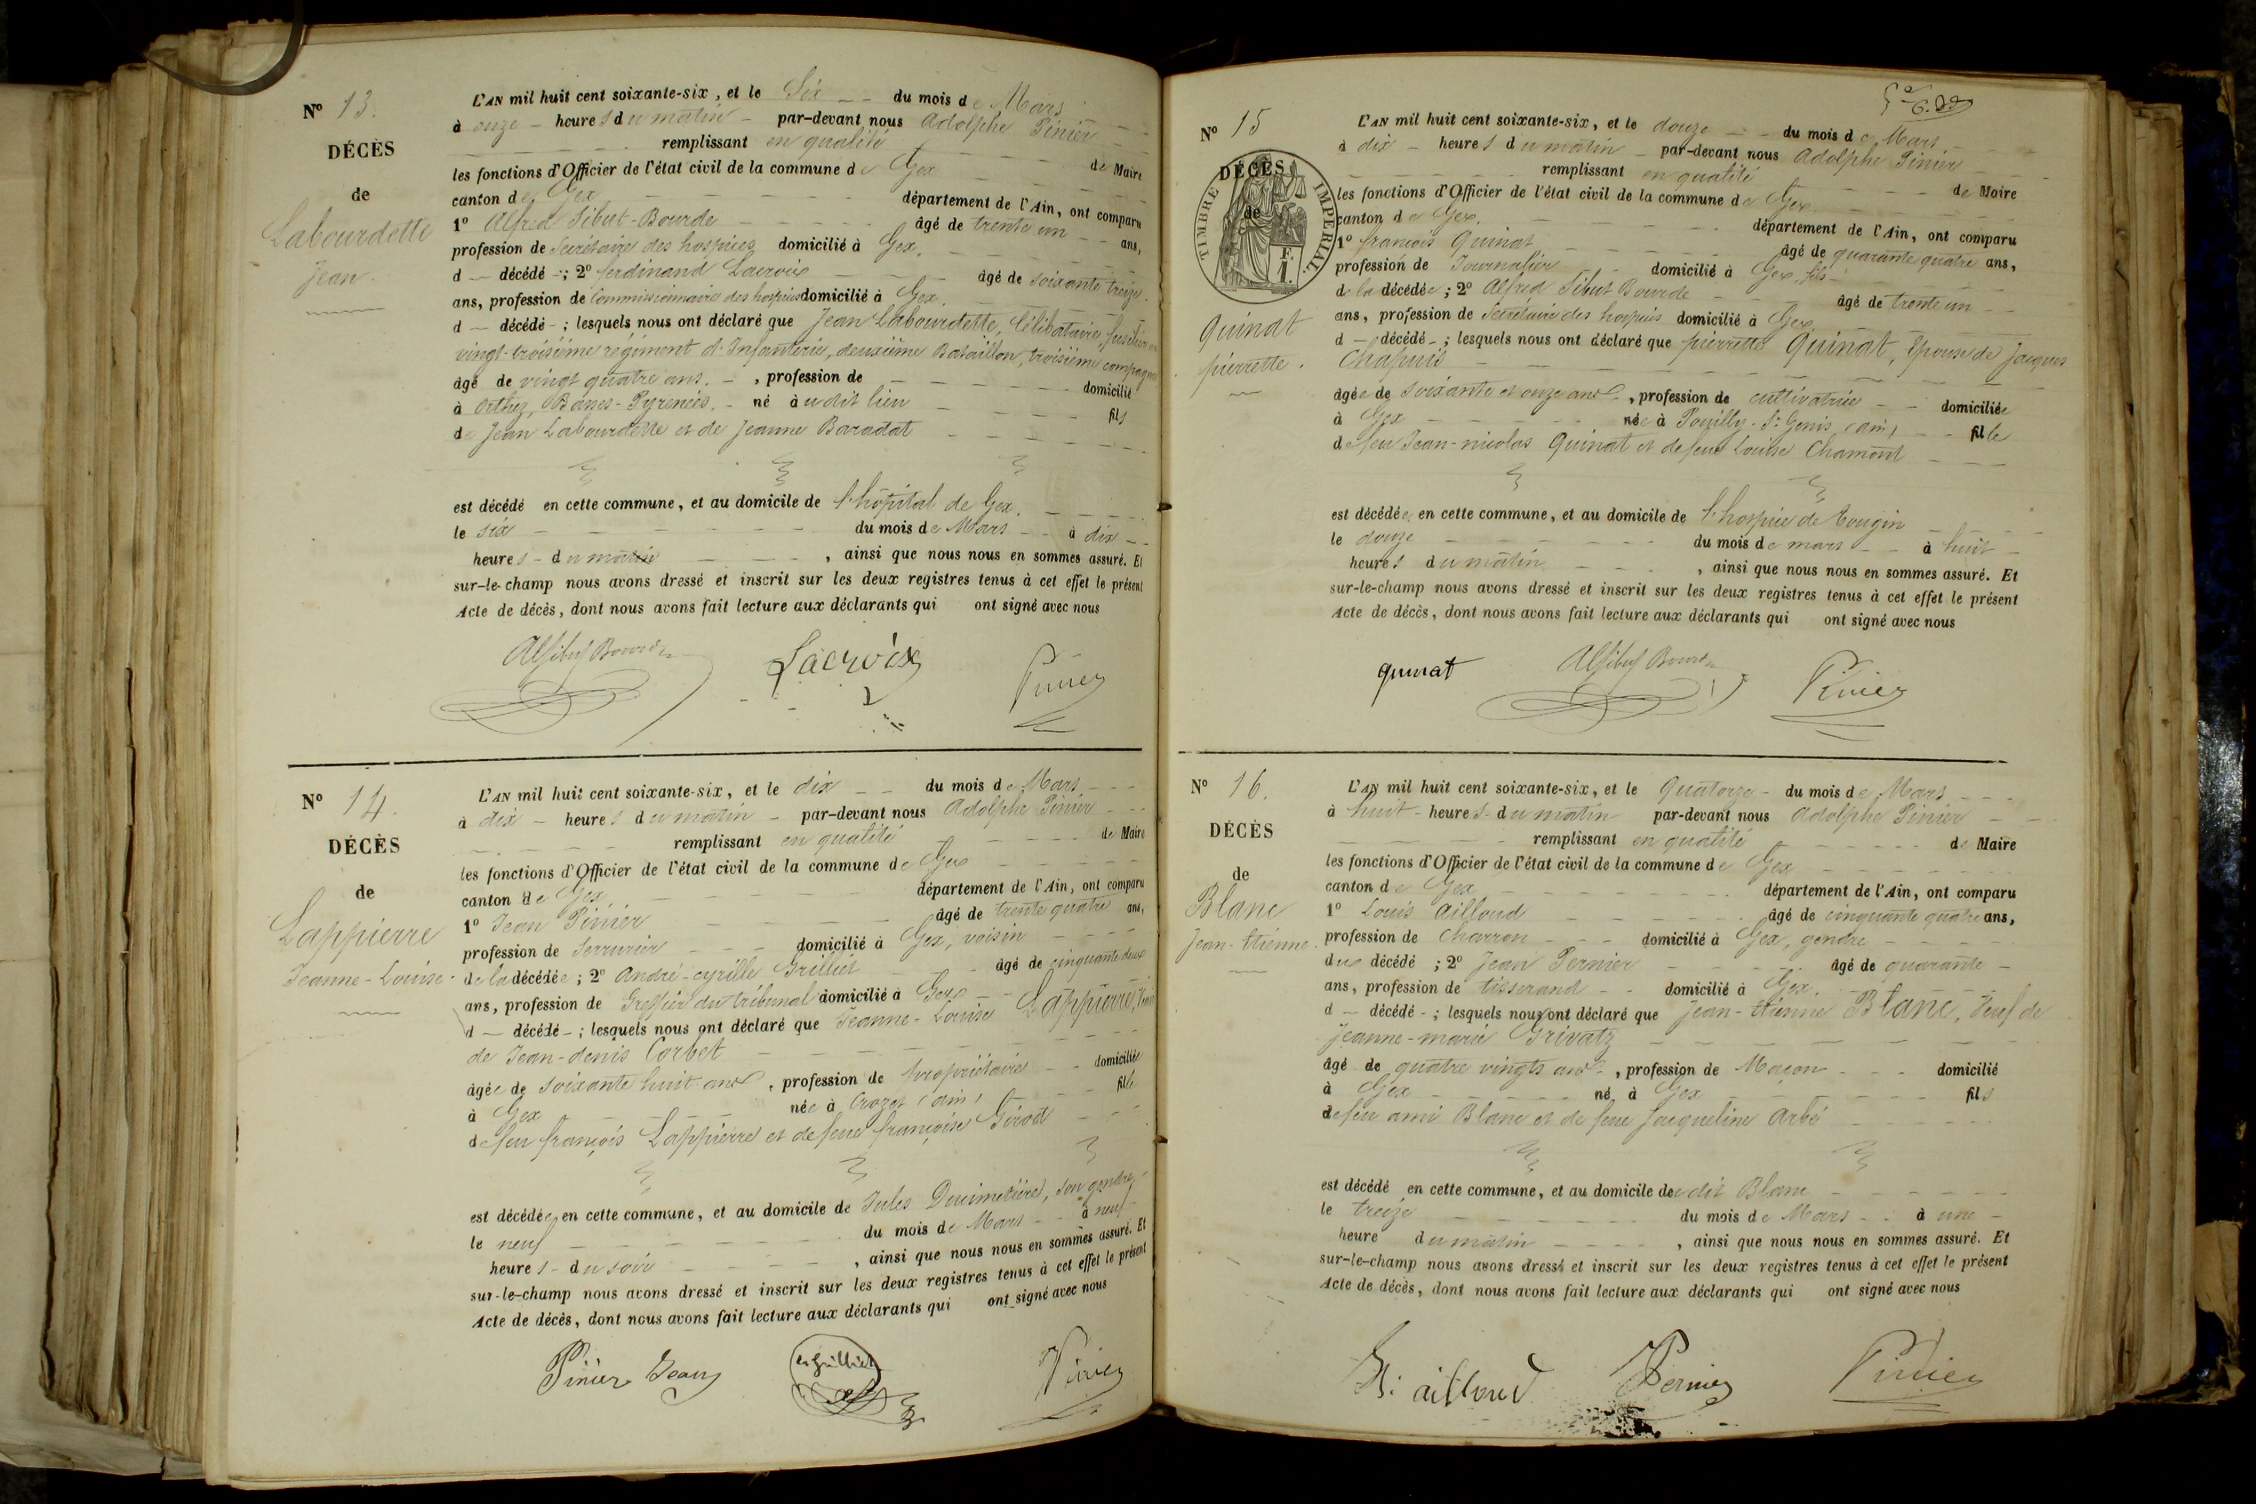 N° 13.
DÉCÈS
de
Labourdette
Jean.
L'AN mil huit cent soixante-six, et le Six du mois de Mars
à onze heures du matin par-devant nous Adolphe Pinier
remplissant en qualité de Maire
les fonctions d'Officier de l'état civil de la commune de Gex
canton de Gex département de l'Ain, ont comparu
1° Alfred Sibut-Bourde âgé de trente un ans,
profession de Secrétaire des hospices domicilié à Gex.
d décédé ; 2° ferdinand Lacroix âgé de soixante treize
ans, profession de Commissionnaire des hospices domicilié à Gex.
d décédé ; lesquels nous ont déclaré que Jean Labourdette, Célibataire, fusilier au
vingt-troisième régiment d'Infanterie, deuxième Bataillon, troisième compagnie
âgé de vingt quatre ans. , profession de domicilié
à Orthez, Basses-Pyrenées. né à udit lieu fils
de Jean Labourdette et de Jeanne Baradat
est décédé en cette commune, et au domicile de l'hôpital de Gex.
le six du mois de Mars à dix
heures du matin , ainsi que nous nous en sommes assuré. Et
sur-le-champ nous avons dressé et inscrit sur les deux registres tenus à cet effet le présent
Acte de décès, dont nous avons fait lecture aux déclarants qui ont signé avec nous
Alf Sibut Bourde Lacroix Pinier
N° 14.
DÉCÈS
de
Lappierre
Jeanne-Louise.
L'AN mil huit cent soixante-six, et le dix du mois de Mars
à dix heures du matin par-devant nous Adolphe Pinier
remplissant en qualité de Maire
les fonctions d'Officier de l'état civil de la commune de Gex
canton de Gex département de l'Ain, ont comparu
1° Jean Pinier âgé de trente quatre ans,
profession de Serrurier domicilié à Gex, voisin
de la décédée ; 2° André-cyrille Grilliet âgé de cinquante deux
ans, profession de Greffier du tribunal domicilié à Gex
d décédé ; lesquels nous ont déclaré que Jeanne-Louise Lappierre,
de Jean-denis Corbet
âgée de soixante huit ans , profession de propriétaire domiciliée
à Gex née à Crozet (ain) fille
de feu françois Lappierre et de feue françoise Girod
est décédée en cette commune, et au domicile de Jules Ducimetière, son gendre
le neuf du mois de Mars à neuf
heures du soir , ainsi que nous nous en sommes assuré. Et
sur-le-champ nous avons dressé et inscrit sur les deux registres tenus à cet effet le présent
Acte de décès, dont nous avons fait lecture aux déclarants qui ont signé avec nous
Pinier Jean Grilliet Pinier
N° 15
DÉCÈS
de
TIMBRE IMPÉRIAL
F.
1.
Quinat
pierrette.
L'AN mil huit cent soixante-six, et le douze du mois de Mars
à dix heures du matin par-devant nous Adolphe Pinier
remplissant en qualité de Maire
les fonctions d'Officier de l'état civil de la commune de Gex
canton de Gex. département de l'Ain, ont comparu
1° françois Quinat âgé de quarante quatre ans,
profession de Journalier domicilié à Gex, fils
de la décédée ; 2° Alfred Sibut Bourde âgé de trente un
ans, profession de Secrétaire des hospices domicilié à Gex
d décédé ; lesquels nous ont déclaré que pierrette Quinat, Epouse de Jacques
Chapuis
âgée de soixante et onze ans , profession de cultivatrice domiciliée
à Gex née à Pouilly-St Genis (ain) fille
de feu Jean-nicolas Quinat et de feue Louise Chamont
est décédée en cette commune, et au domicile de l'hospice de Tougin
le douze du mois de mars à huit
heures du matin , ainsi que nous nous en sommes assuré. Et
sur-le-champ nous avons dressé et inscrit sur les deux registres tenus à cet effet le présent
Acte de décès, dont nous avons fait lecture aux déclarants qui ont signé avec nous
quinat Alf Sibut Bourde Pinier
N° 16.
DÉCÈS
de
Blanc
Jean-Etienne.
L'AN mil huit cent soixante-six, et le Quatorze du mois de Mars
à huit heures du matin par-devant nous Adolphe Pinier
remplissant en qualité de Maire
les fonctions d'Officier de l'état civil de la commune de Gex
canton de Gex département de l'Ain, ont comparu
1° Louis Ailloud âgé de cinquante quatre ans,
profession de Charron domicilié à Gex, gendre
du décédé ; 2° Jean Pernier âgé de quarante
ans, profession de tisserand domicilié à Gex.
d décédé ; lesquels nous ont déclaré que Jean-Etienne Blanc, Veuf de
Jeanne-marie Grivatz
âgé de quatre vingts ans , profession de Maçon domicilié
à Gex né à Gex fils
de feu ami Blanc et de feue Jacqueline Arbé
est décédé en cette commune, et au domicile dudit Blanc
le treize du mois de Mars à une
heure du matin , ainsi que nous nous en sommes assuré. Et
sur-le-champ nous avons dressé et inscrit sur les deux registres tenus à cet effet le présent
Acte de décès, dont nous avons fait lecture aux déclarants qui ont signé avec nous
ailloud Pernier Pinier